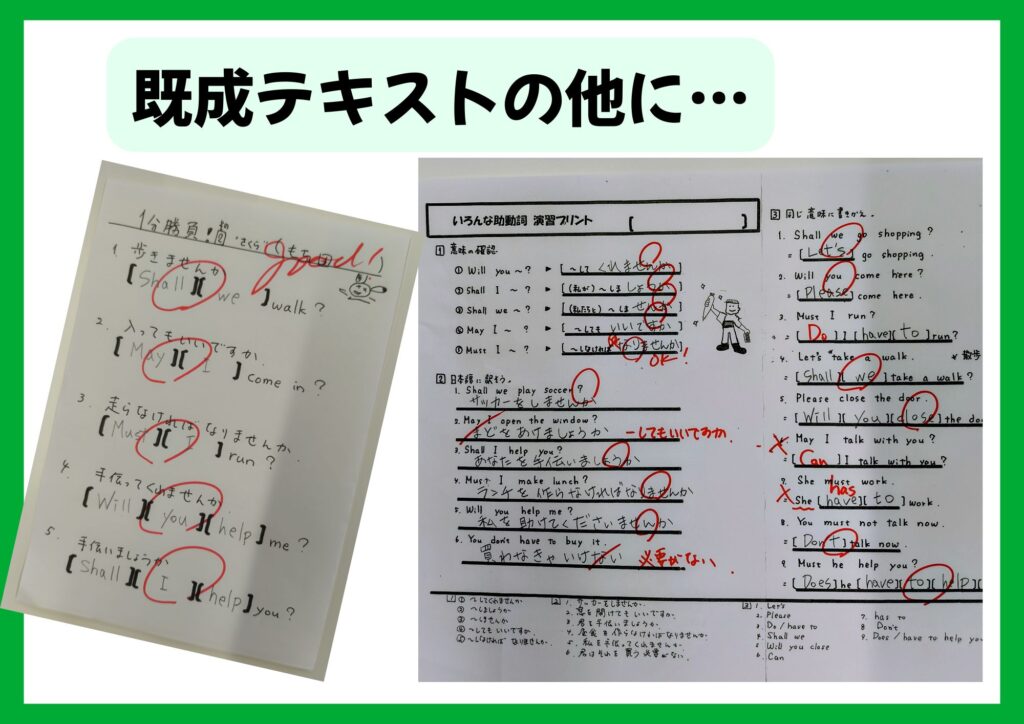 既成テキストの他に…
1分勝負！
good!
1. 歩きませんか
[Shall][we]walk?
2. 入ってもいいですか
[May][I]come in?
3. 走らなければなりませんか
[Must][I]run?
4. 手伝ってくれませんか
[Will][you][help]me?
5. 手伝いましょうか
[Shall][I][help]you?
いろんな助動詞 演習プリント [ ]
1 意味の確認
① Will you ~? ▶ [~して くれませんか]
② Shall I ~? ▶ [(私が)~しましょうか]
③ Shall we ~? ▶ [(私たちと)~しませんか]
④ May I ~? ▶ [~しても いいですか]
⑤ Must I ~? ▶ [~しなければ なりませんか]
OK!
2 日本語に訳そう。
1. Shall we play soccer?
サッカーをしませんか
2. May I open the window?
まどをあけましょうか ーしてもいいですか.
3. Shall I help you?
あなたを手伝いましょうか
4. Must I make lunch?
ランチを作らなければなりませんか
5. Will you help me?
私を助けてくださいませんか
6. You don't have to buy it.
買わなきゃいけない 必要がない.
3 同じ意味に書きかえ。
1. Shall we go shopping?
= [Let's] go shopping.
2. Will you come here?
= [Please] come here.
3. Must I run?
= [Do] I [have][to] run?
4. Let's take a walk. * 散歩
= [Shall][we] take a walk?
5. Please close the door.
= [Will][you][close] the do
6. May I talk with you?
= [Can] I talk with you?
7. She must work.
has
= She [have][to] work.
8. You must not talk now.
= [Don't] talk now.
9. Must he help you?
= [Does] he [have][to][help][
1 ① ~してくれませんか
② ~しましょうか
③ ~しませんか
④ ~してもいいですか
⑤ ~しなければ なりませんか
2 1. サッカーをしませんか.
2. 窓を開けてもいいですか.
3. 君を手伝いましょうか.
4. 昼食を作らなければなりませんか.
5. 私を手伝ってくれませんか.
6. 君はそれを買う必要がない.
3 1. Let's
2. Please
3. Do / have to
4. Shall we
5. Will you close
6. Can
7. has to
8. Don't
9. Does / have to help you